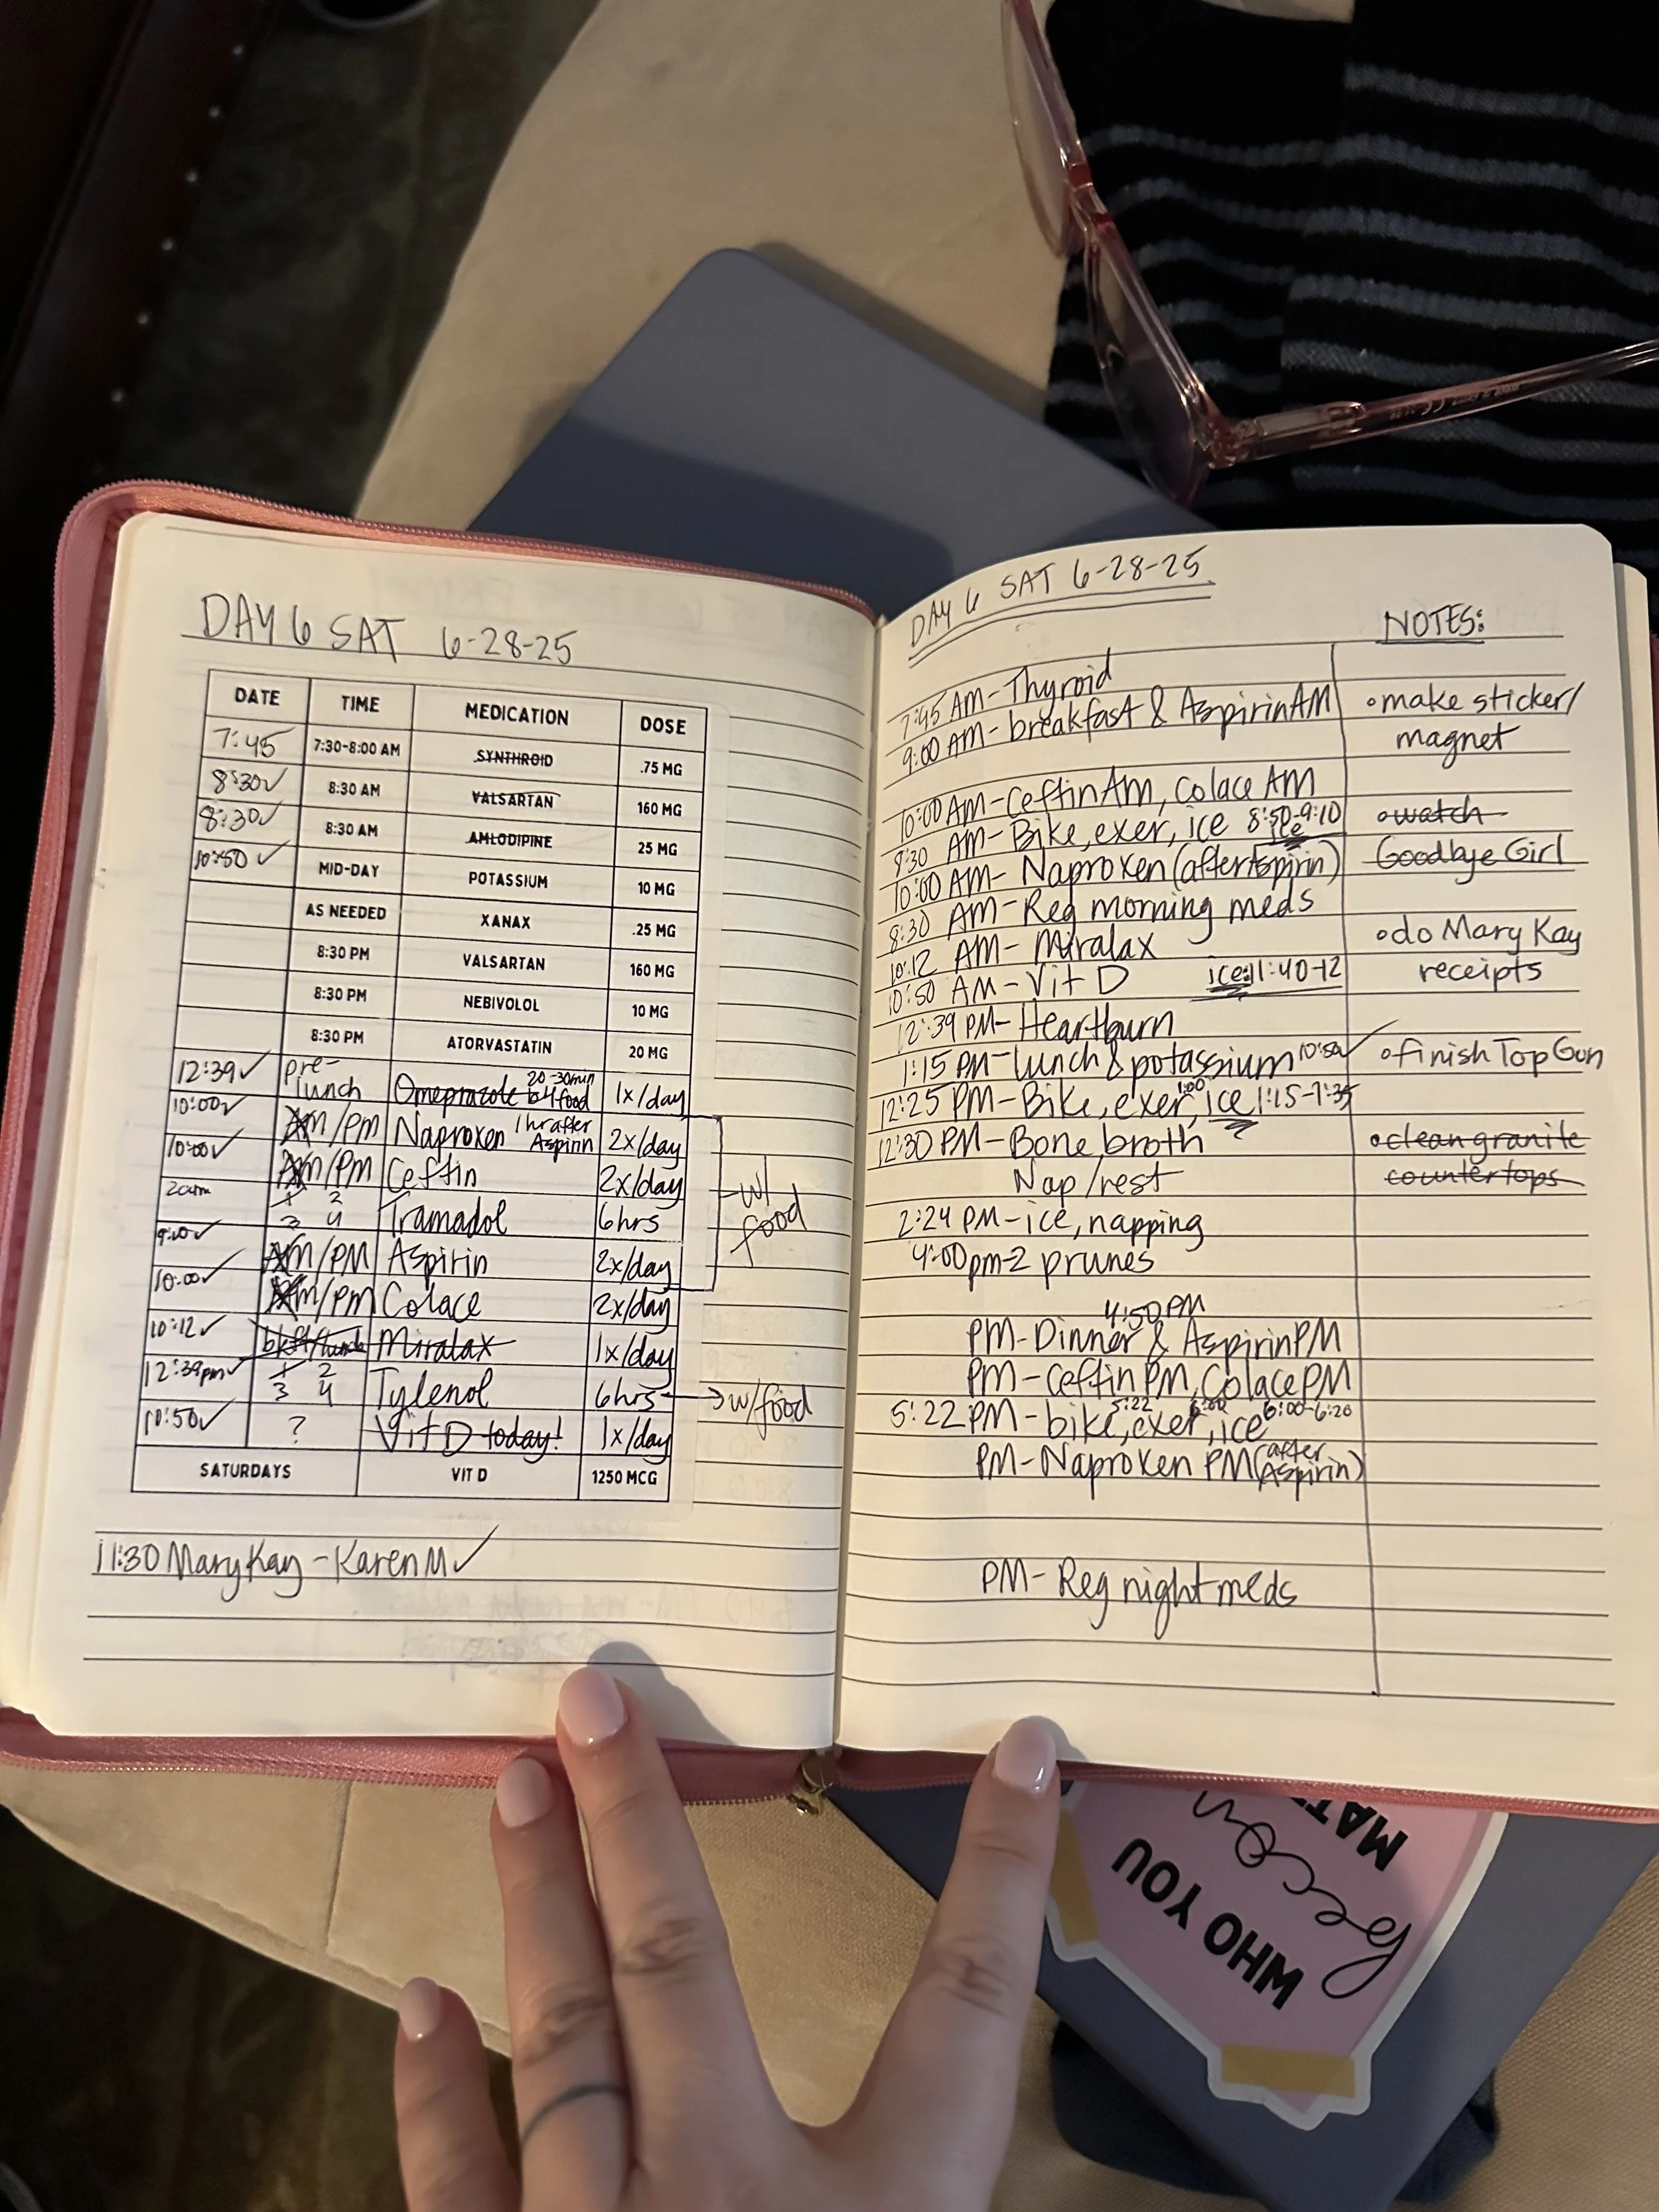 DAY 6 SAT 6-28-25
DATE TIME MEDICATION DOSE
7:45 7:30-8:00 AM SYNTHROID .75 MG
8:30✓ 8:30 AM VALSARTAN 160 MG
8:30✓ 8:30 AM AMLODIPINE 25 MG
10:50 ✓ MID-DAY POTASSIUM 10 MG
AS NEEDED XANAX .25 MG
8:30 PM VALSARTAN 160 MG
8:30 PM NEBIVOLOL 10 MG
8:30 PM ATORVASTATIN 20 MG
12:39✓ pre-lunch Omeprazole 20-30min b4 food 1x/day
10:00✓ AM/PM Naproxen 1 hr after Aspirin 2x/day
10:00✓ AM/PM Ceftin 2x/day
2am 1 2 3 4 Tramadol 6hrs
w/ food
9:00✓ AM/PM Aspirin 2x/day
10:00✓ AM/PM Colace 2x/day
10:12✓ bkfst/lunch Miralax 1x/day
12:39pm✓ 1 2 3 4 Tylenol 6hrs → w/food
10:50✓ ? Vit D today! 1x/day
SATURDAYS VIT D 1250 MCG
11:30 Mary Kay - Karen M ✓
DAY 6 SAT 6-28-25
NOTES:
7:45 AM - Thyroid
9:00 AM - breakfast & Aspirin AM
10:00 AM - Ceftin Am, Colace AM
8:30 AM - Bike, exer, ice 8:50-9:10 ice
10:00 AM - Naproxen (after Aspirin)
8:30 AM - Reg morning meds
10:12 AM - Miralax
10:50 AM - Vit D ice: 11:40-12
12:39 PM - Heartburn
1:15 PM - lunch & potassium 10:50 ✓
12:25 PM - Bike, exer, 1:00 ice 1:15-1:35
12:30 PM - Bone broth
Nap/rest
2:24 PM - ice, napping
4:00pm - 2 prunes
4:50 PM
PM - Dinner & Aspirin PM
PM - Ceftin PM, Colace PM
5:22 PM - bike, 5:22 exer, 6:00 ice 6:00-6:20
PM - Naproxen PM (after Aspirin)
PM - Reg night meds
• make sticker/
magnet
• watch
Goodbye Girl
• do Mary Kay
receipts
• finish Top Gun
• clean granite
countertops
WHO YOU